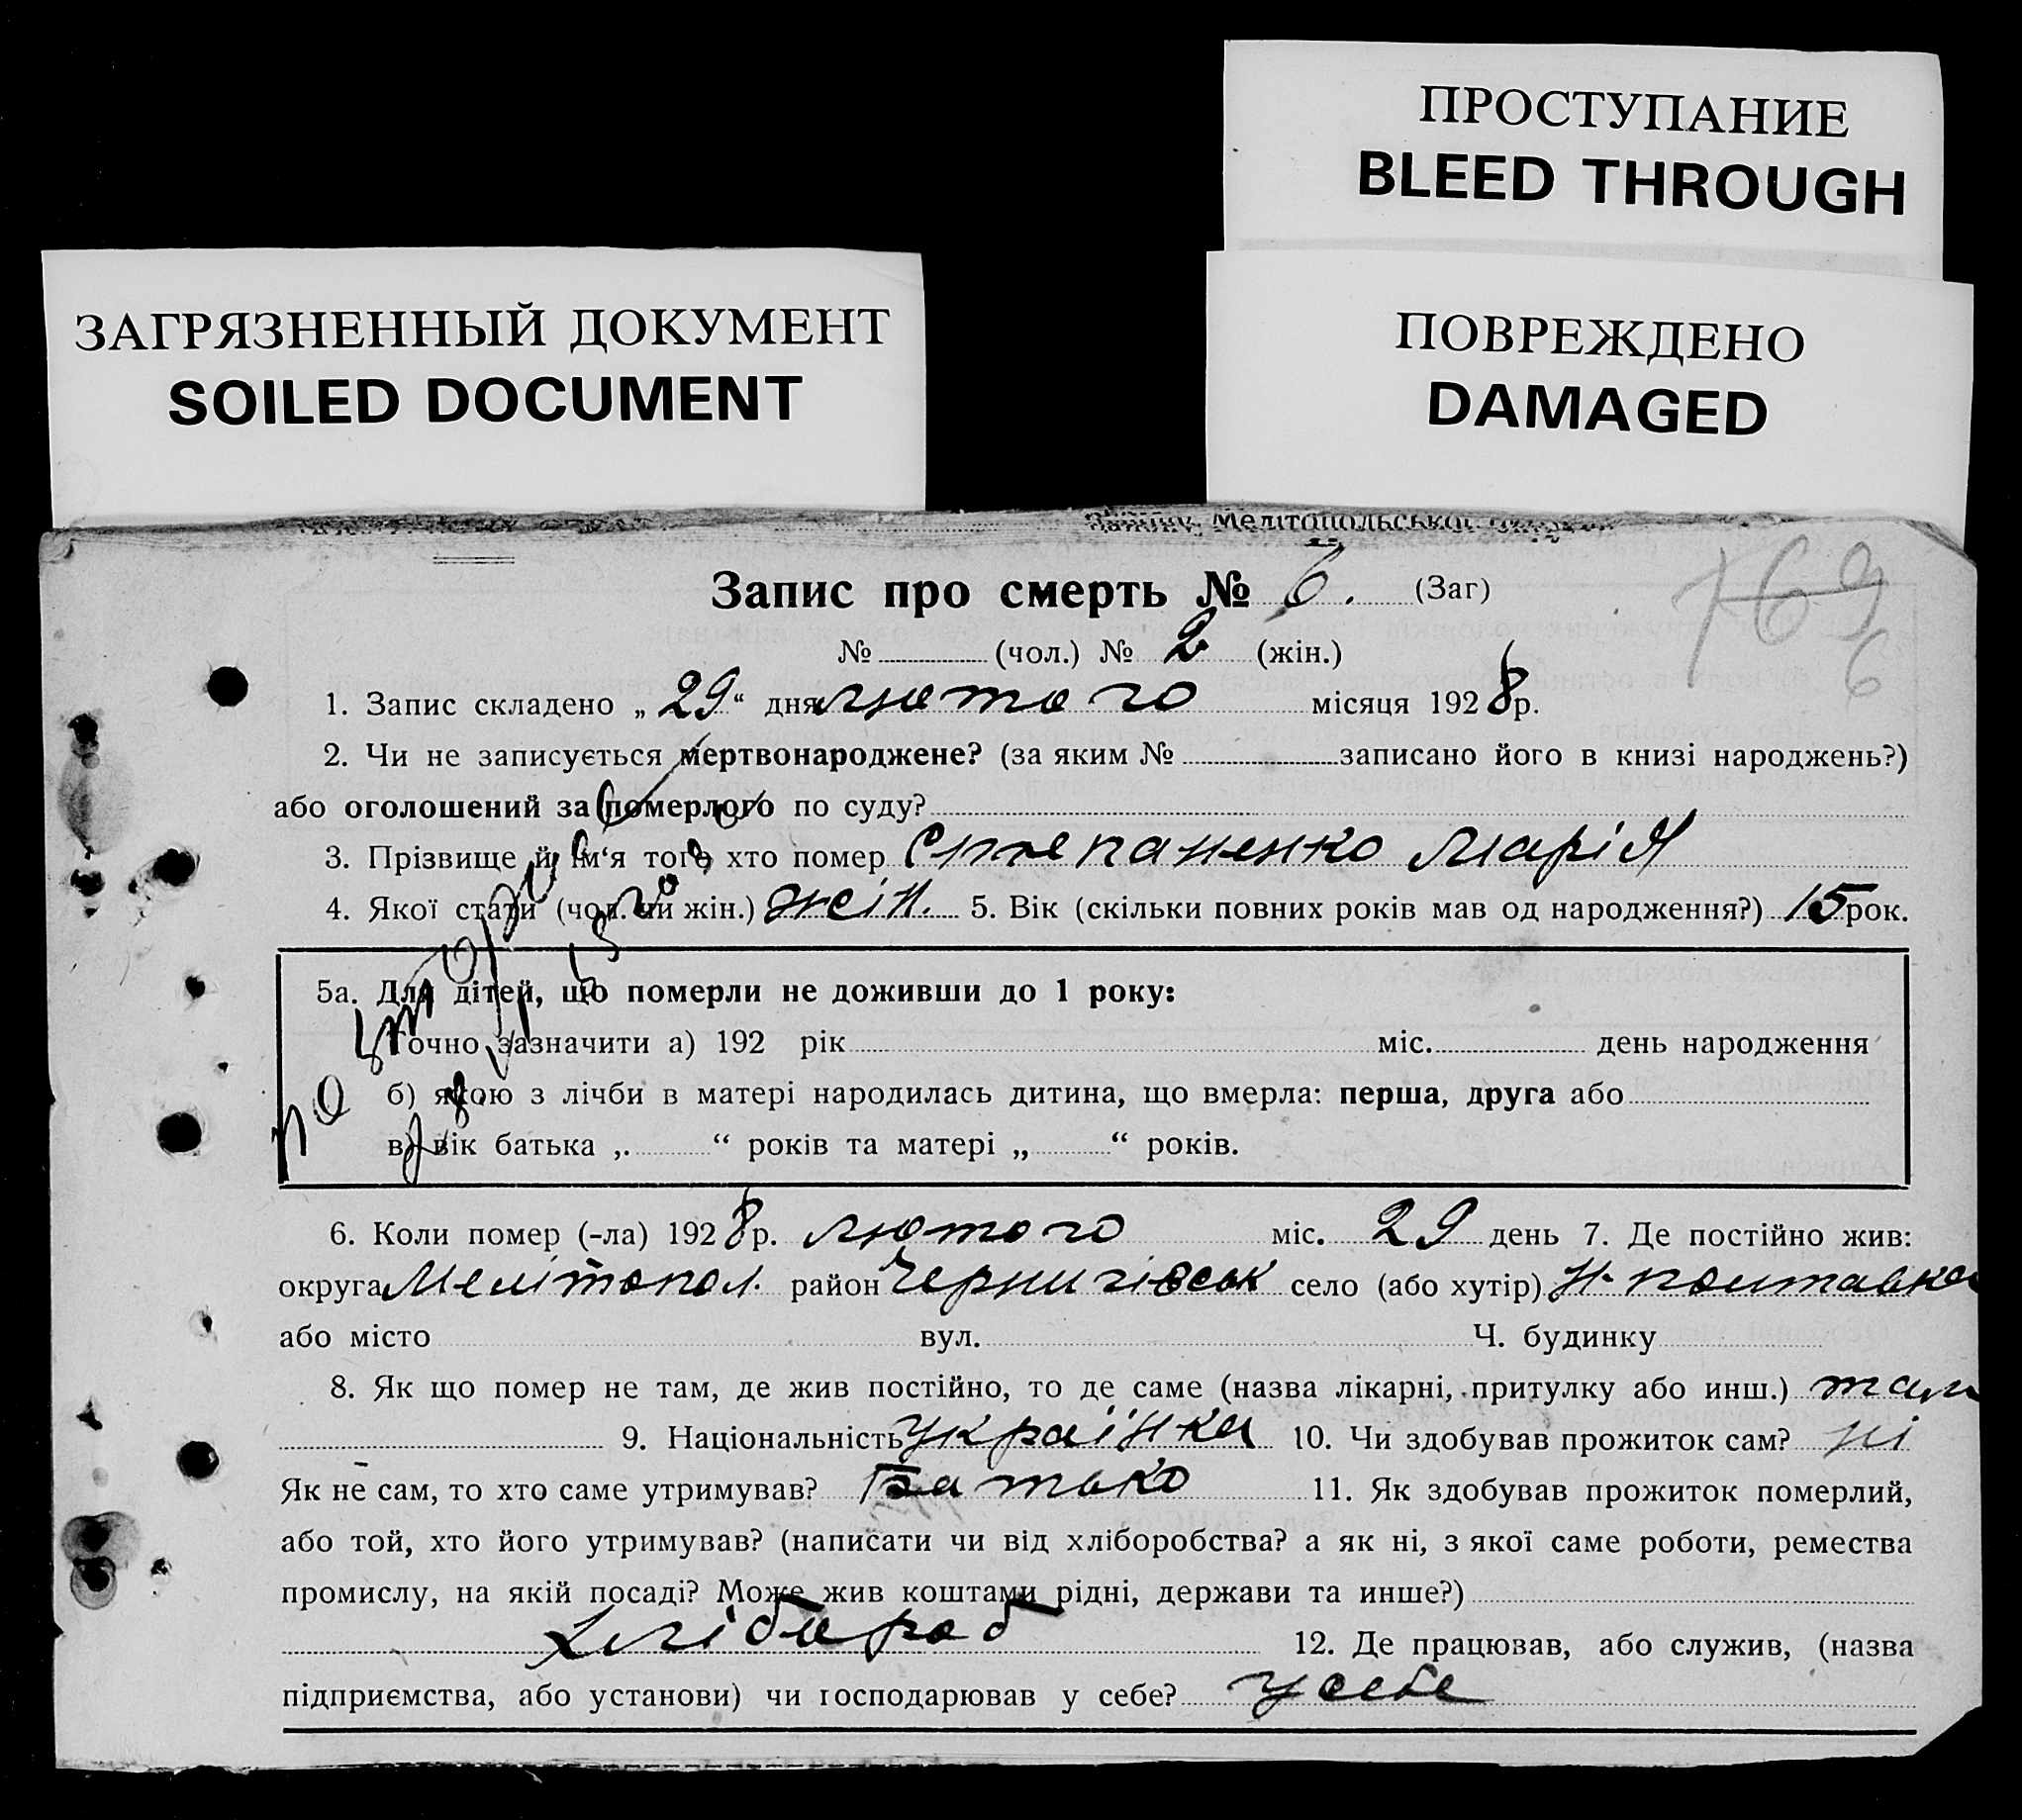 ПРОСТУПАНИЕ
BLEED THROUGH
ЗАГРЯЗНЕННЫЙ ДОКУМЕНТ
SOILED DOCUMENT
ПОВРЕЖДЕНО
DAMAGED
Мелітопольської
Запис про смерть № 6. (Заг)
169
6
№ (чол.) № 2 (жін.)
1. Запис складено „29“ дня лютого місяця 1928 р.
2. Чи не записується мертвонароджене? (за яким № записано його в книзі народжень?)
або оголошений за померлого по суду?
3. Прізвище й ім‘я того, хто помер Степаненко Марія
4. Якої статі (чол. чи жін.) жін. 5. Вік (скільки повних років мав од народження?) 15 рок.
5а. Для дітей, що померли не доживши до 1 року:
Точно зазначити а) 192 рік міс. день народження
б) якою з лічби в матері народилась дитина, що вмерла: перша, друга або
в) вік батька „ “ років та матері „ “ років.
6. Коли помер (-ла) 1928 р. лютого міс. 29 день 7. Де постійно жив:
округа Мелітопол. район Чернигівськ село (або хутір) Н-полтавка
або місто вул. Ч. будинку
8. Як що помер не там, де жив постійно, то де саме (назва лікарні, притулку або инш.) там
9. Національність українка 10. Чи здобував прожиток сам? ні
Як не сам, то хто саме утримував? Батько 11. Як здобував прожиток померлий,
або той, хто його утримував? (написати чи від хліборобства? а як ні, з якої саме роботи, ремества
промислу, на якій посаді? Може жив коштами рідні, держави та инше?)
Хлібороб 12. Де працював, або служив, (назва
підприємства, або установи) чи господарював у себе? у себе